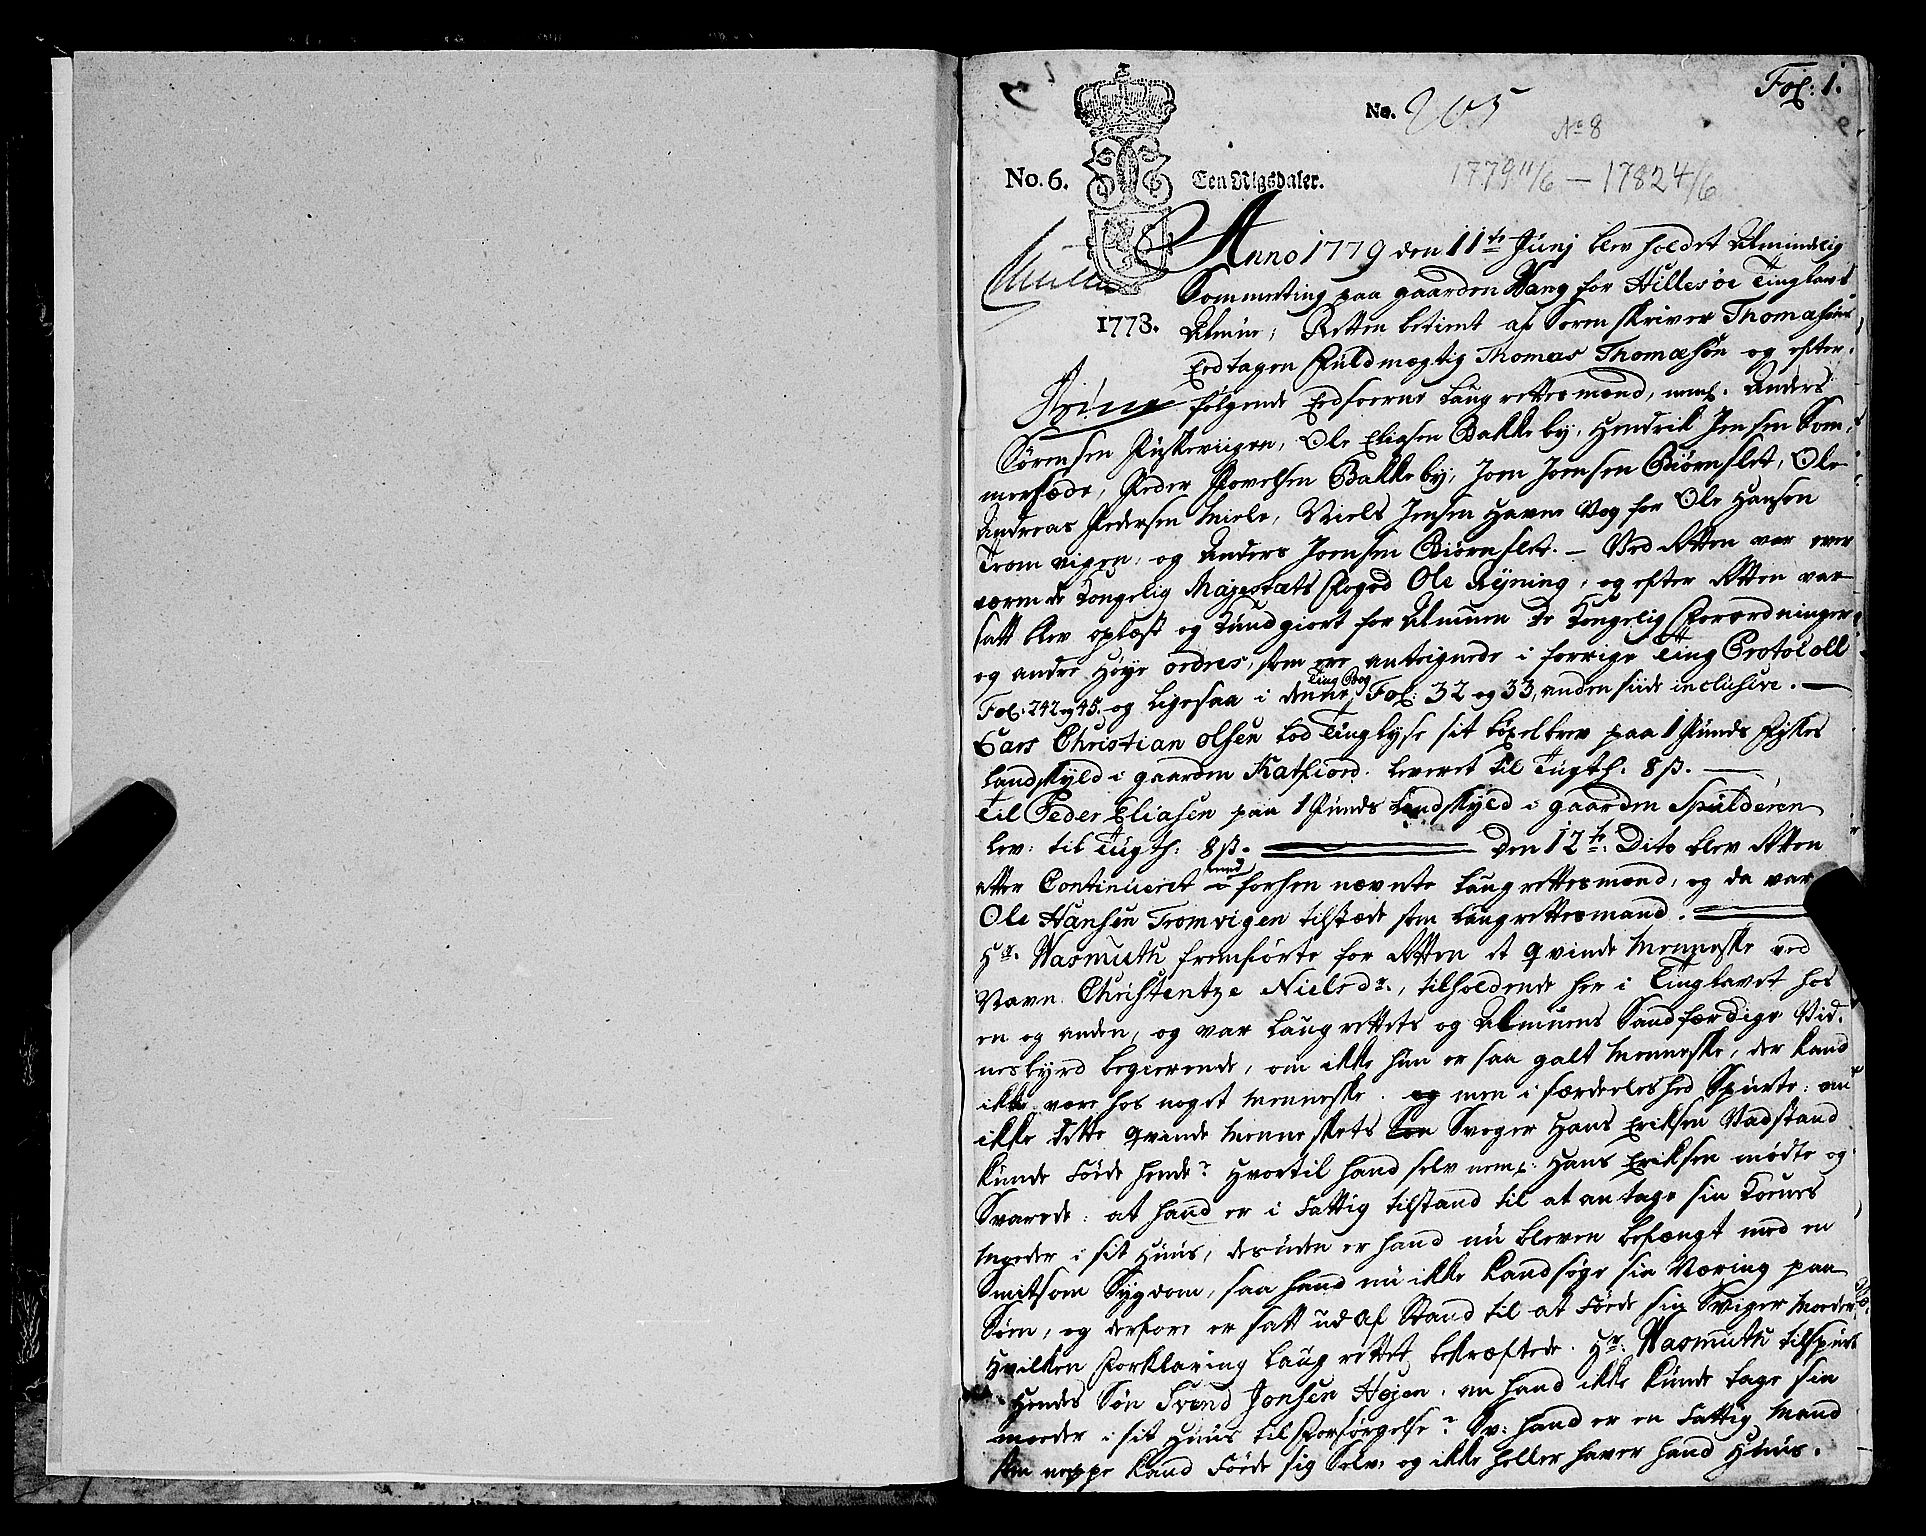 Fol: 1.
No. 205
No 8
No. 6.
Een Rigsdaler.
1779 11/6 — 1782 4/6
Anno 1779 den 11te Junj blev holdet Almindelig
Sommerting paa gaarden Wang for Hillesøe Tinglavs
1773.
Almue; Retten betient af Sorenskriver Thomasøns
Eedtagen Fuldmægtig Thomas Thomæsøn og efter-
følgende Eedsoerne Laugrettesmænd, neml. Anders
Sørensen Russeviigen, Ole Eliasen Bakkeby, Hendrik Jensen Som-
mersæde, Peder Povelsen Bakkeby, Joen Joensen Biørnslet, Ole
Andreas Pedersen Miele, Niels Jensen Havnevog for Ole Hansen
Tromvigen, og Anders Joensen Biørnslet. — Ved Retten var over
værende Kongelig Majestæts Foged Ole Ryning, og efter Retten var
satt blev oplæst og kundgiort for Almuen de Kongelig Forordninger
og andre Høye ordres, som ere anteignede i forrige Ting Protocoll
Fol: 242 og 45. og ligesaa i denne Ting Bog Fol: 32 og 33, anden siide inclusive. —
Lars Christian Olsen lod Tinglyse sit bøxelbrev paa 1 Punds Fiskes
Landskyld i gaarden Katfiord. leveret til Tugth. 8 ß. —
Til Peder Eliasen paa 1 Punds Landskyld i gaarden Spilderen
lev: til Tugth: 8 ß. — Den 12te Dito blev Retten
atter Continueret med forhen nævnte Laugrettesmænd, og da var
Ole Hansen Tromvigen tilstæde som Laugrettesmand. —
Hr. Wasmuth fremførte for Retten et qvinde Menneske ved
Navn Christentze Nielsdr., tilholdende her i Tinglavet hos
en og anden, og var Laugrettets og Almuens Sandfærdige Vid-
nesbyrd begierende, om ikke hun er saa galt Menneske, der kand
ikke være hos noget Menneske. og men i særdeleshed Spurte: om
ikke dette qvinde Menneskets Søn Sveger Hans Eriksen Vadstand
kunde føde hende? Hvortil hand selv neml: Hans Eriksen mødte og
Svarede: at hand er i Fattig tilstand til at antage sin Koenes
Moeder i sit Huus, desuden er hand nu bleven befængt med en
Smitsom Sygdom, saa hand nu ikke kand søge sin Næring paa
Søen, og derfore er satt ud af Stand til at føde sin Sviger Moeder
Hvilken Forklaring Laugrettet bekræftede. Hr: Wasmuth tilspurte
Hendes Søn Svend Jonsen Høyen, om hand ikke kunde tage sin
moeder i sit Huus til Forsørgelse? Sv: hand er en Fattig Mand
som neppe kand føde sig Selv, og ikke heller haver hand Huus.